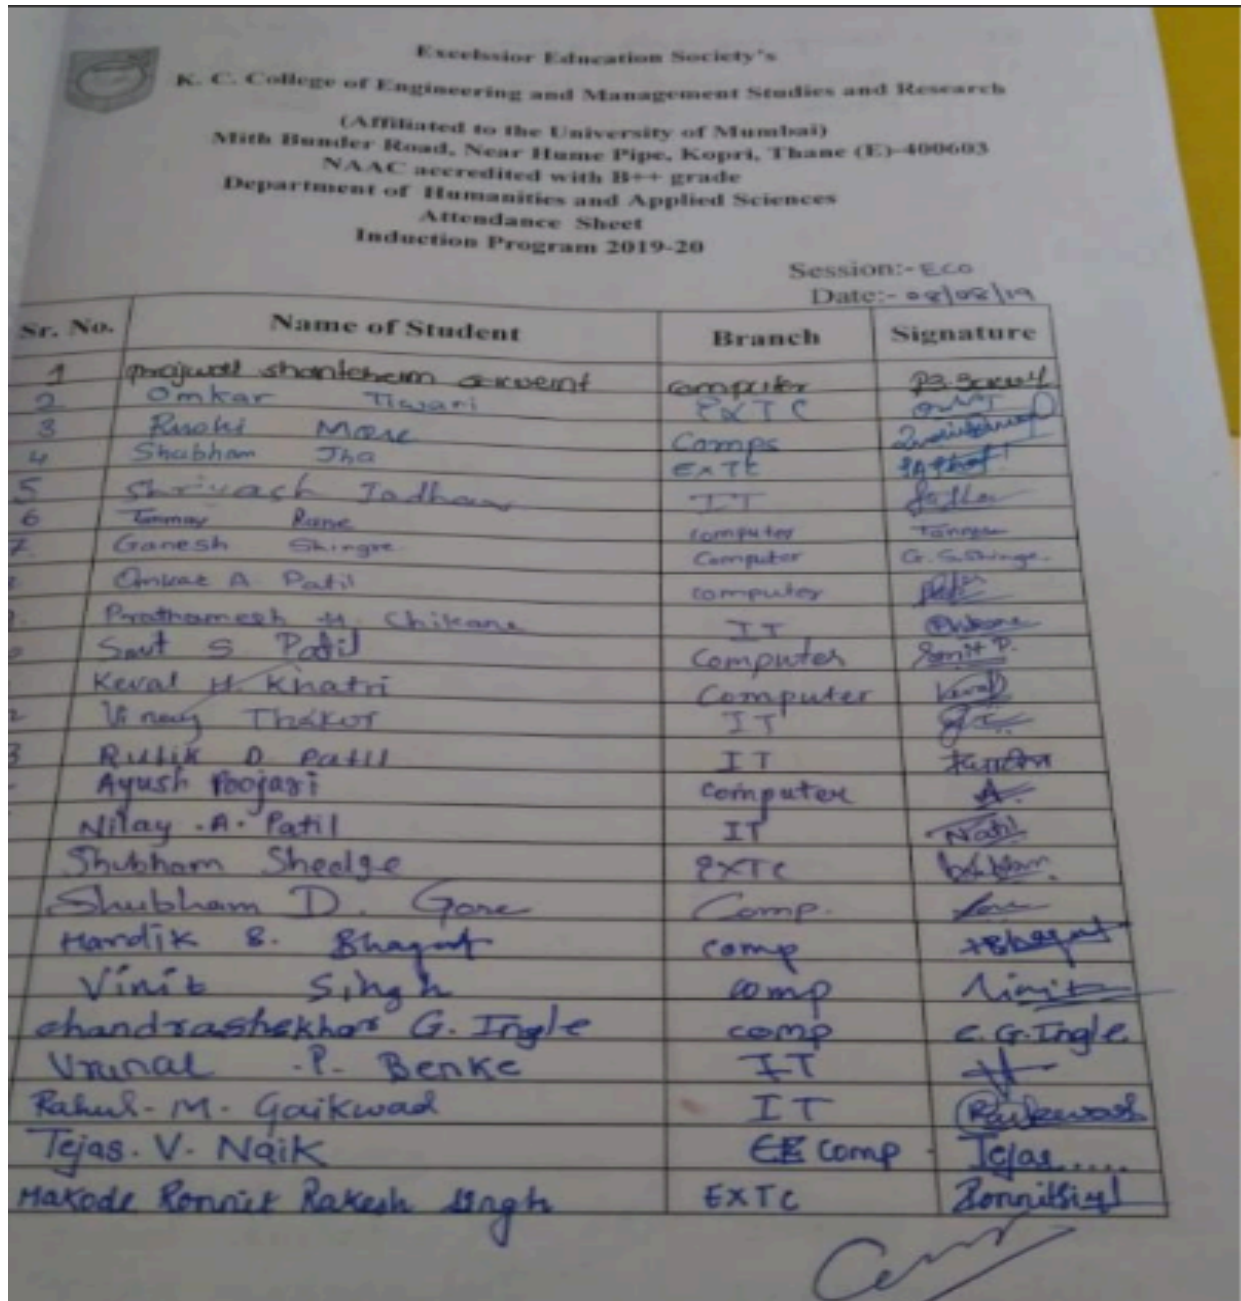 Excelssior Education Society's
K. C. College of Engineering and Management Studies and Research
(Affiliated to the University of Mumbai)
Mith Bunder Road, Near Hume Pipe, Kopri, Thane (E)-400603
NAAC accredited with B++ grade
Department of Humanities and Applied Sciences
Attendance Sheet
Induction Program 2019-20
Session:- ECO
Date:- 08/08/19
Sr. No. Name of Student Branch Signature
1 prajwal computer
2 Omkar Tiwari EXTC
3 More Comps
4 Shubham Jha EXTC
5 Jadhav IT
6 Tanmay Rane computer
7. Ganesh Shingre Computer G. S. Shinge.
Omkar A. Patil computer
Prathamesh H. Chikane IT
Smit S Patil Computer Smit P.
Keval H. Khatri Computer Keval
Vinay Thakur IT
3 Rutik D. Patil IT
Ayush Poojari Computer A.
Nilay .A. Patil IT
Shubham Shedge EXTC
Shubham D. Gore Comp.
Hardik B. Bhagat comp Bhagat
Vinit Singh comp Vinit
chandrashekhar G. Ingle comp C. G. Ingle
Vrunal .P. Benke IT
Rahul. M. Gaikwad IT
Tejas. V. Naik Comp Tejas.....
Makode Ronnit Rakesh Singh EXTC